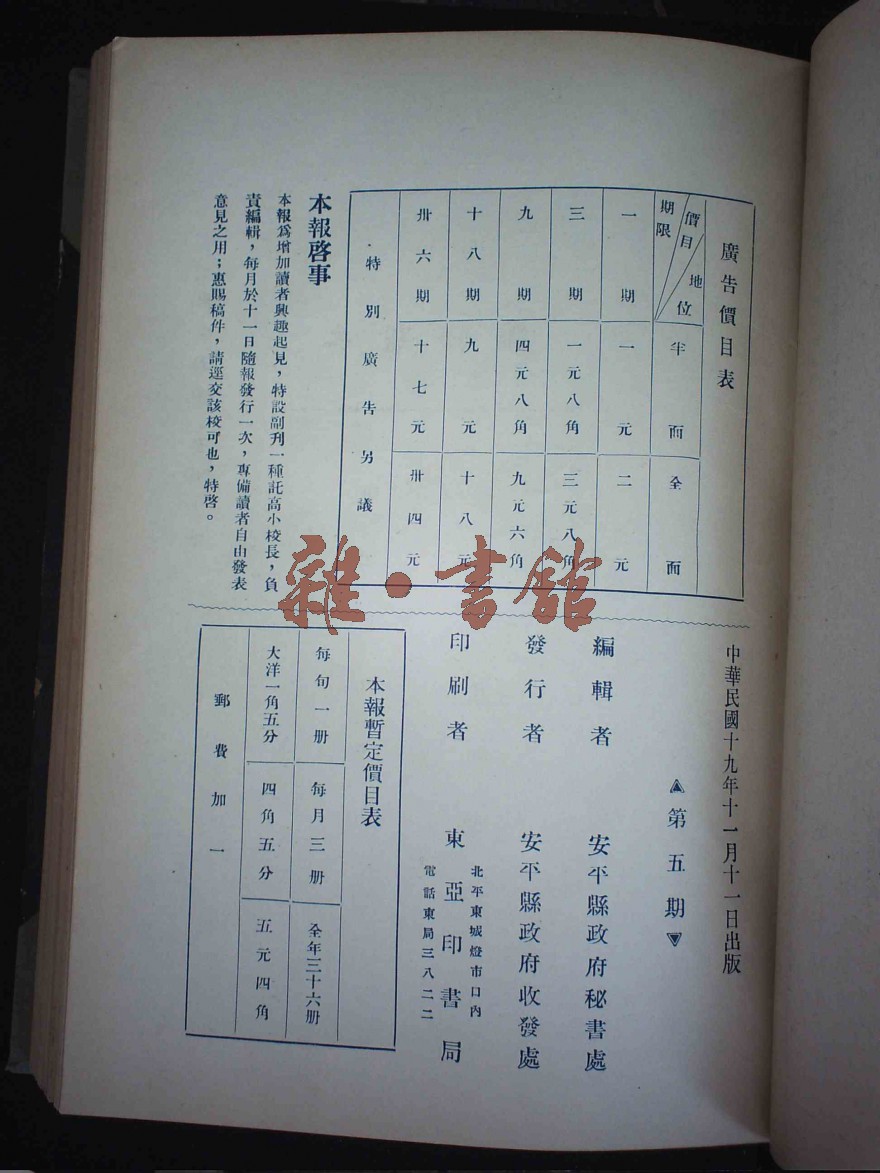 廣告價目表
價目 地位 期限
半面
全面
一期
一元
二元
三期
一元八角
三元八角
九期
四元八角
九元六角
十八期
九元
十八元
卅六期
十七元
卅四元
特別廣告另議
本報啓事
本報爲增加讀者興趣起見，特設副刊一種託高小校長，負
責編輯，每月於十一日隨報發行一次，專備讀者自由發表
意見之用；惠賜稿件，請逕交該校可也，特啓。
中華民國十九年十一月十一日出版
▲第五期▼
編輯者 安平縣政府秘書處
發行者 安平縣政府收發處
印刷者 東亞印書局
北平東城燈市口內
電話東局三八二二
本報暫定價目表
每旬一册
每月三册
全年三十六册
大洋一角五分
四角五分
五元四角
郵費加一
雜·書館